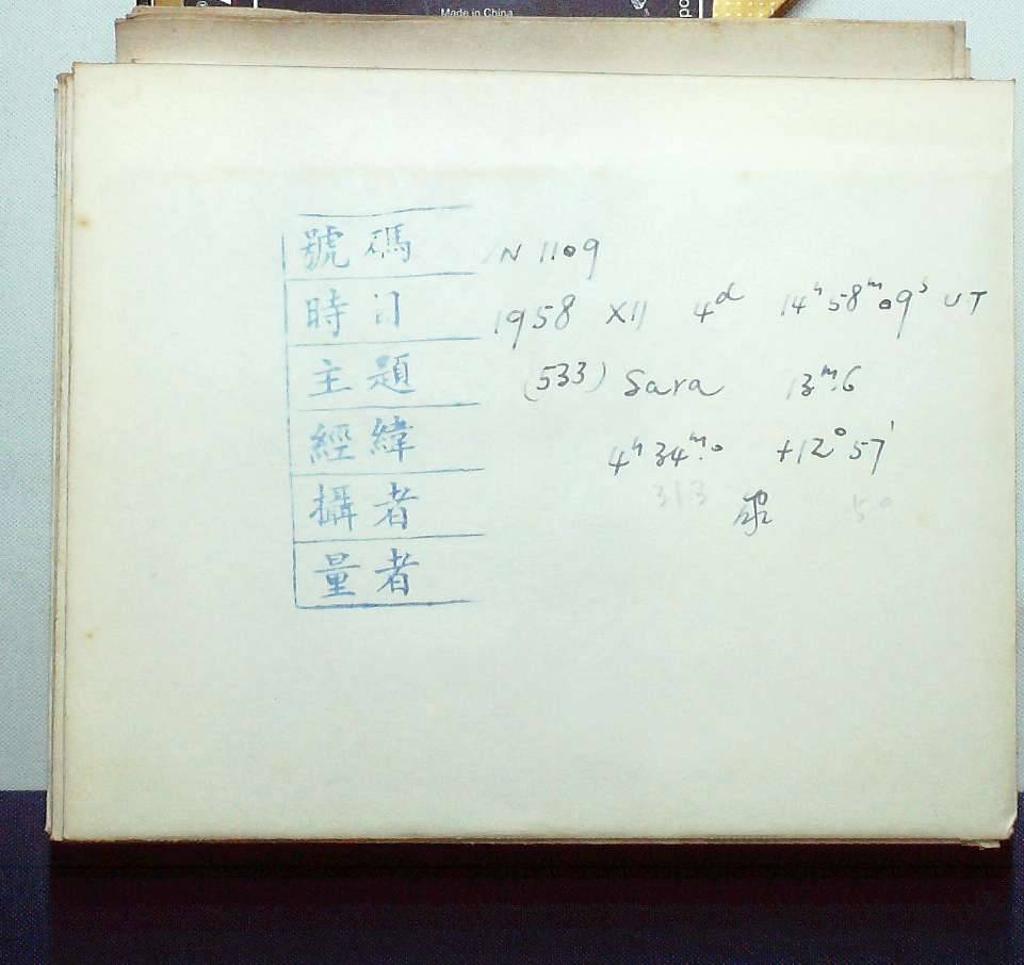 Made in China
號碼 N 1109
時 1958 XII 4ᵈ 14ʰ58ᵐ09ˢ UT
主題 (533) Sara 13ᵐ.6
經緯 4ʰ34ᵐ.0 +12°57'
313 50
攝者
量者